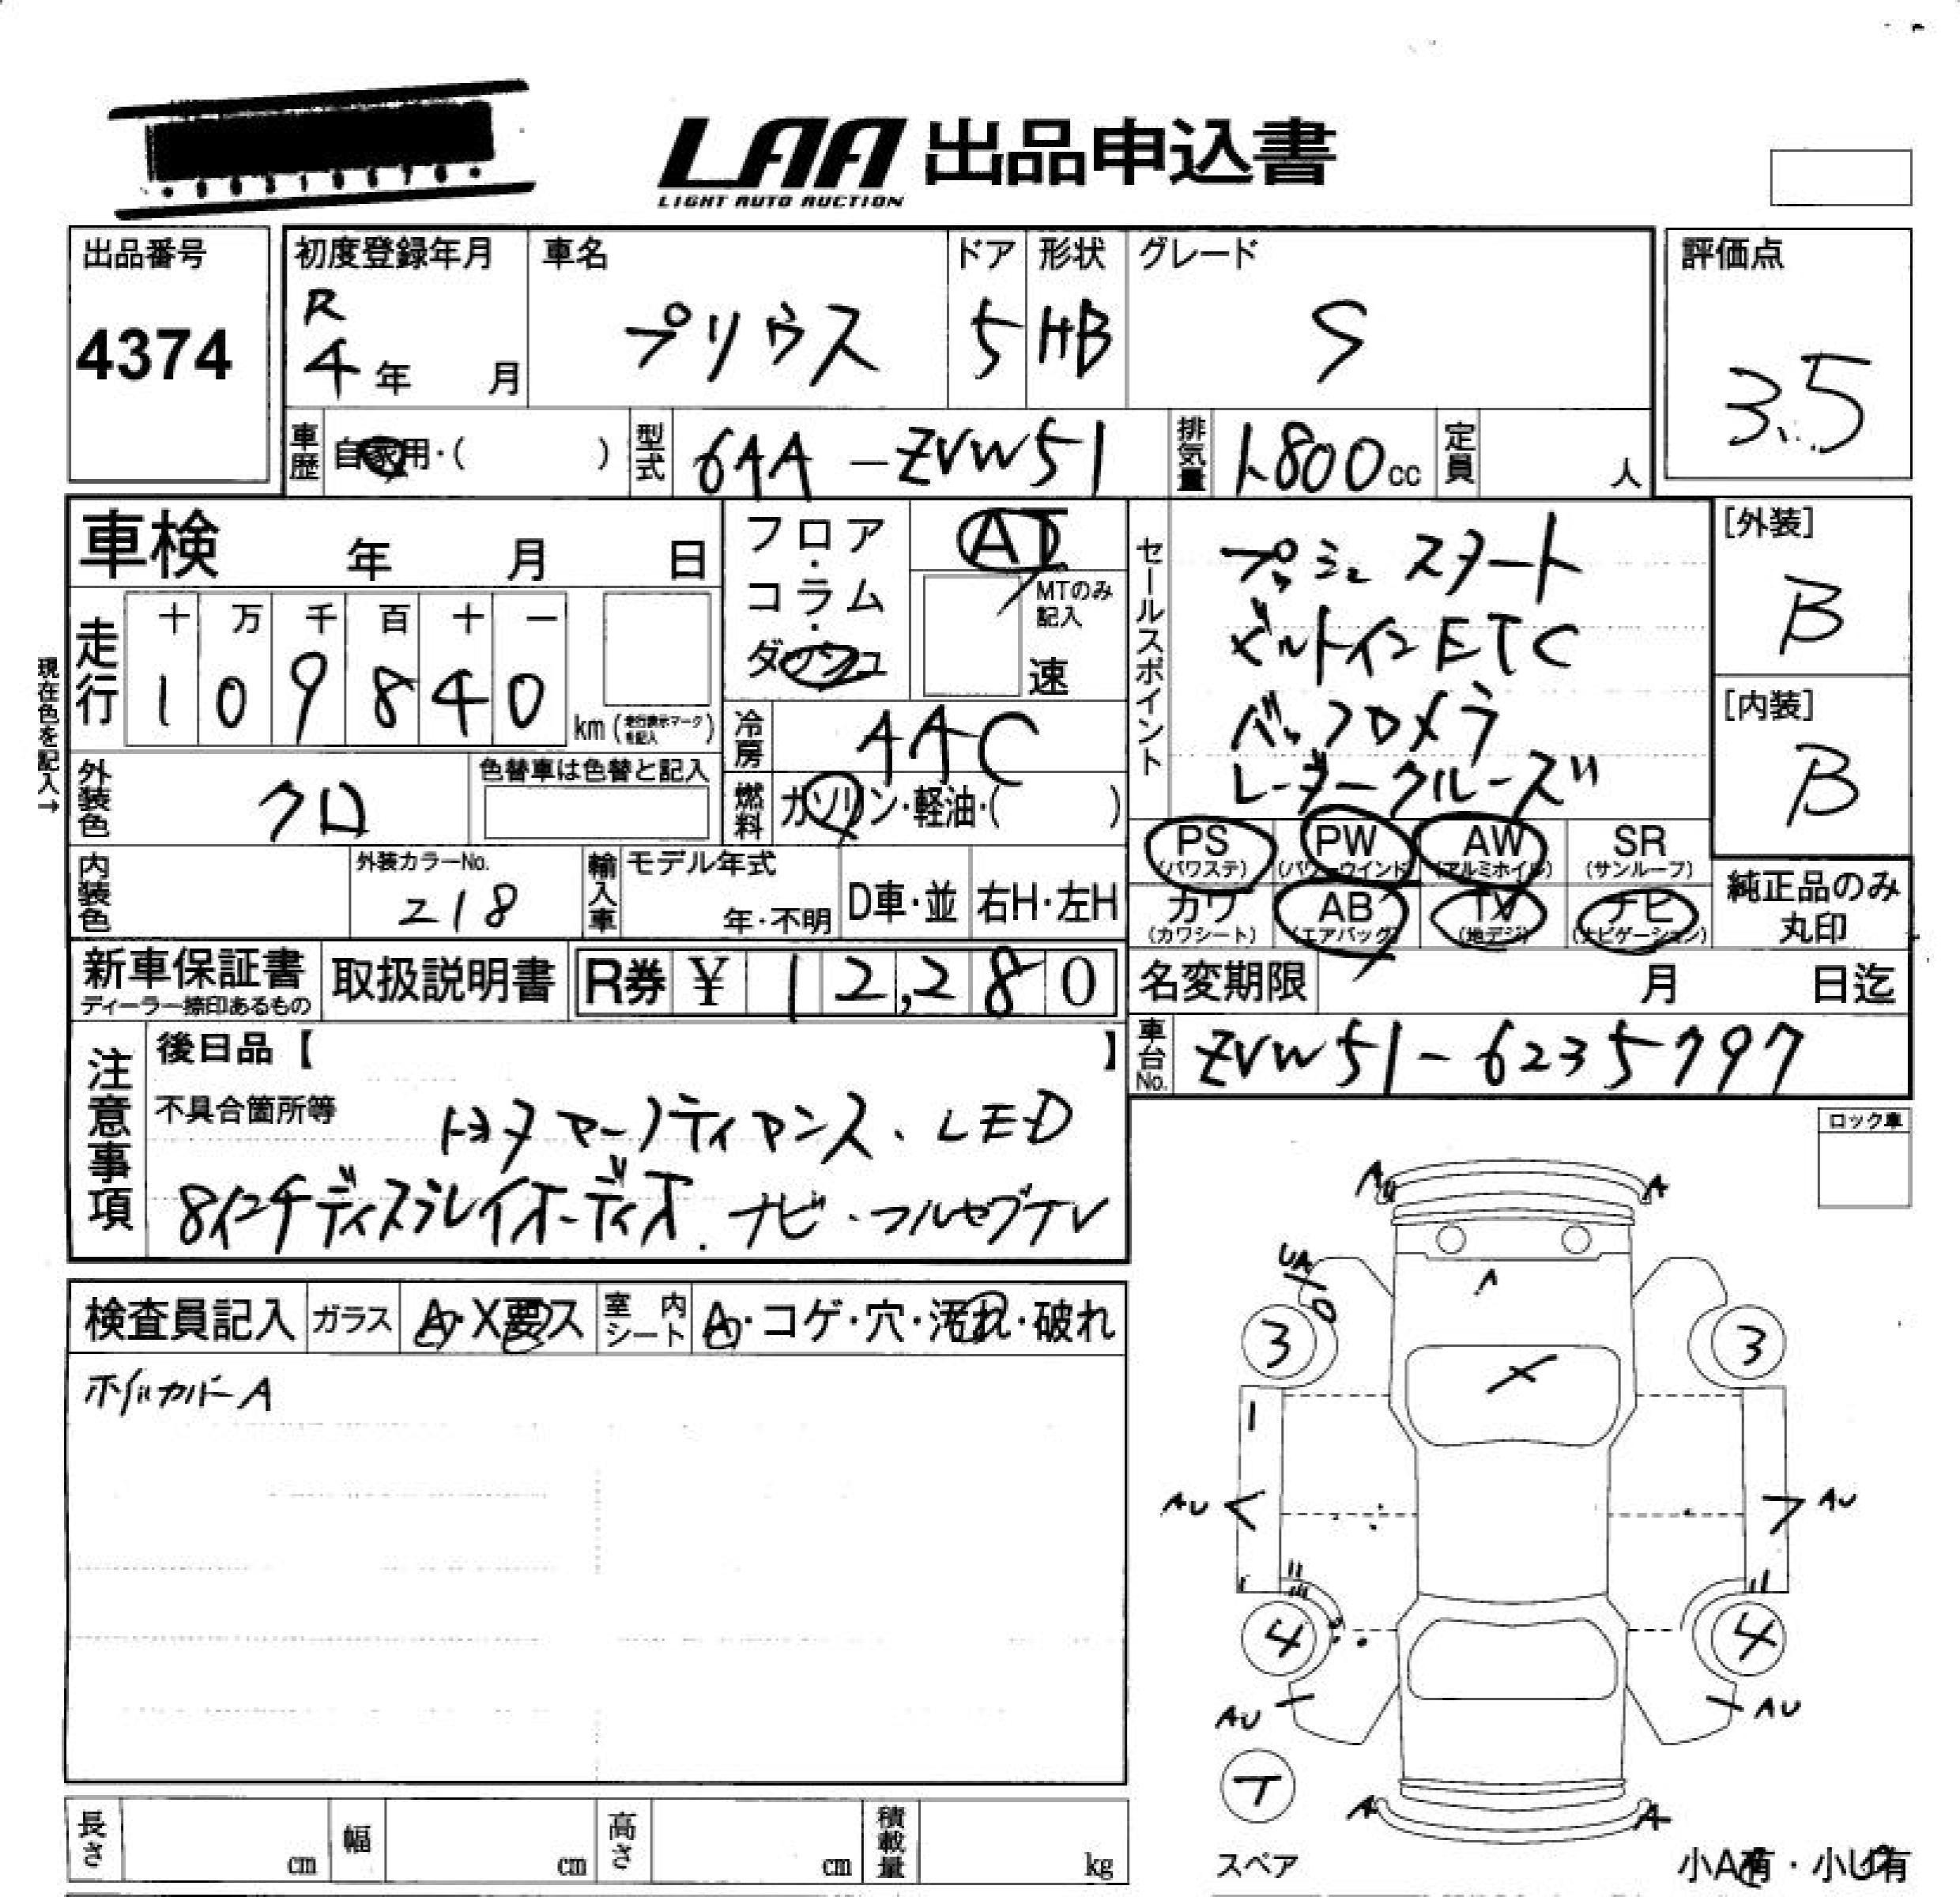 LAA 出品申込書
LIGHT AUTO AUCTION
出品番号
4374
初度登録年月
R
4年 月
車名
プリウス
ドア
5
形状
HB
グレード
S
評価点
3.5
車歴
自家用・( )
型式
6AA-ZVW51
排気量
1,800cc
定員
人
車検 年 月 日
フロア・コラム・ダッシュ
AT
MTのみ記入
速
セールスポイント
プッシュスタート
ビルトインETC
バックカメラ
レーダークルーズ
[外装]
B
[内装]
B
現在色を記入→
走行
十 万 千 百 十 一
1 0 9 8 4 0
km(走行表示マークを記入)
冷房
AAC
外装色
クロ
色替車は色替と記入
燃料
ガソリン・軽油・( )
PS (パワステ)
PW (パワーウインド)
AW (アルミホイル)
SR (サンルーフ)
カワ (カワシート)
AB (エアバッグ)
TV (地デジ)
ナビ (ナビゲーション)
純正品のみ丸印
内装色
外装カラーNo.
218
輸入車
モデル年式
年・不明
D車・並
右H・左H
新車保証書
ディーラー捺印あるもの
取扱説明書
R券 ¥ 12,280
名変期限 月 日迄
車台No.
ZVW51-6235797
注意事項
後日品【 】
不具合箇所等
トヨタマーノティアンス、LED
8インチディスプレイオーディオ.ナビ・フルセグTV
ロック車
検査員記入
ガラス
A・X要ス
室内シート
A・コゲ・穴・汚れ・破れ
ホイルカバーA
A
A
UA
3
3
X
AU
AU
4
4
AU
AU
T
A
A
スペア
長さ cm
幅 cm
高さ cm
積載量 kg
小A有・小U有